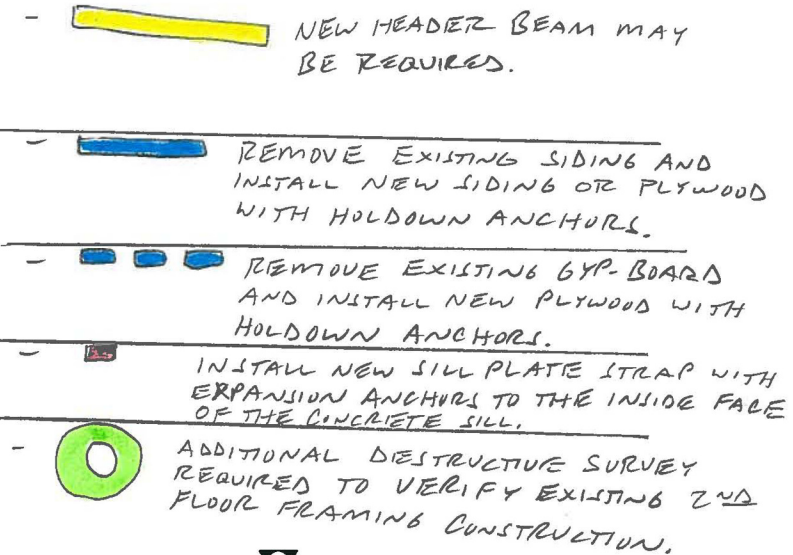 - NEW HEADER BEAM MAY
BE REQUIRED.
- REMOVE EXISTING SIDING AND
INSTALL NEW SIDING OR PLYWOOD
WITH HOLDOWN ANCHORS.
- REMOVE EXISTING GYP-BOARD
AND INSTALL NEW PLYWOOD WITH
HOLDOWN ANCHORS.
- INSTALL NEW SILL PLATE STRAP WITH
EXPANSION ANCHORS TO THE INSIDE FACE
OF THE CONCRETE SILL.
- ADDITIONAL DESTRUCTIVE SURVEY
REQUIRED TO VERIFY EXISTING 2ND
FLOOR FRAMING CONSTRUCTION.